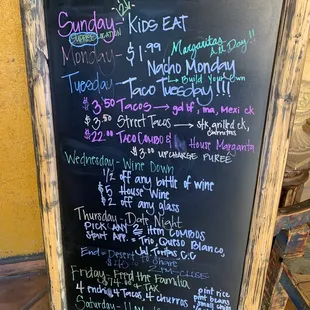 Sunday - KIDS EAT
Monday - $1.99 Margaritas
All Day!!
Nacho Monday
Tuesday - Build Your Own
Taco Tuesday!!!
$3.50 Tacos → gd bf, ma, Mexi ck
$3.50 Street Tacos → stk, grilled ck,
carnitas
$22.00 Taco Combo & House Margarita
$3.00 upcharge PUREE
Wednesday - Wine Down
1/2 off any bottle of wine
$5 House Wine
$2 off any glass
Thursday - Date Night
PICK ANY 2 item COMBOS
Start App. = Trio, Queso Blanco,
Jal Toritas C.C
End = Desert to share
CLOSE
Friday - Feed the Familia
+ TAX
4 enchiladas 4 Tacos, 4 churros
pint rice
pint beans
small chips
Saturday -